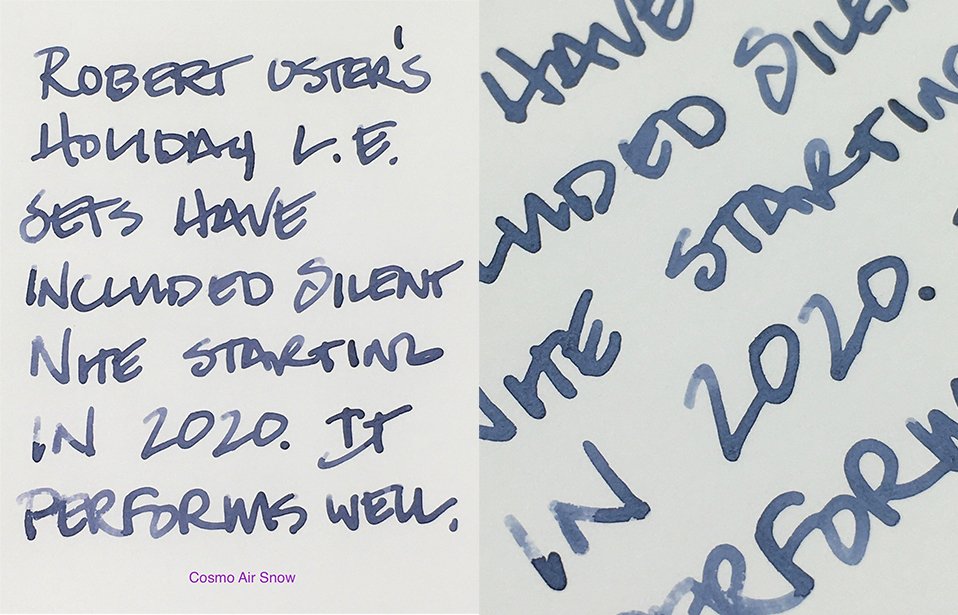 ROBERT OSTER'S
HOLIDAY L.E.
SETS HAVE
INCLUDED SILENT
NITE STARTING
IN 2020. IT
PERFORMS WELL.
Cosmo Air Snow
HAVE
SILEN
LUDED
STARTIN
NITE
2020.
IN
RFORM